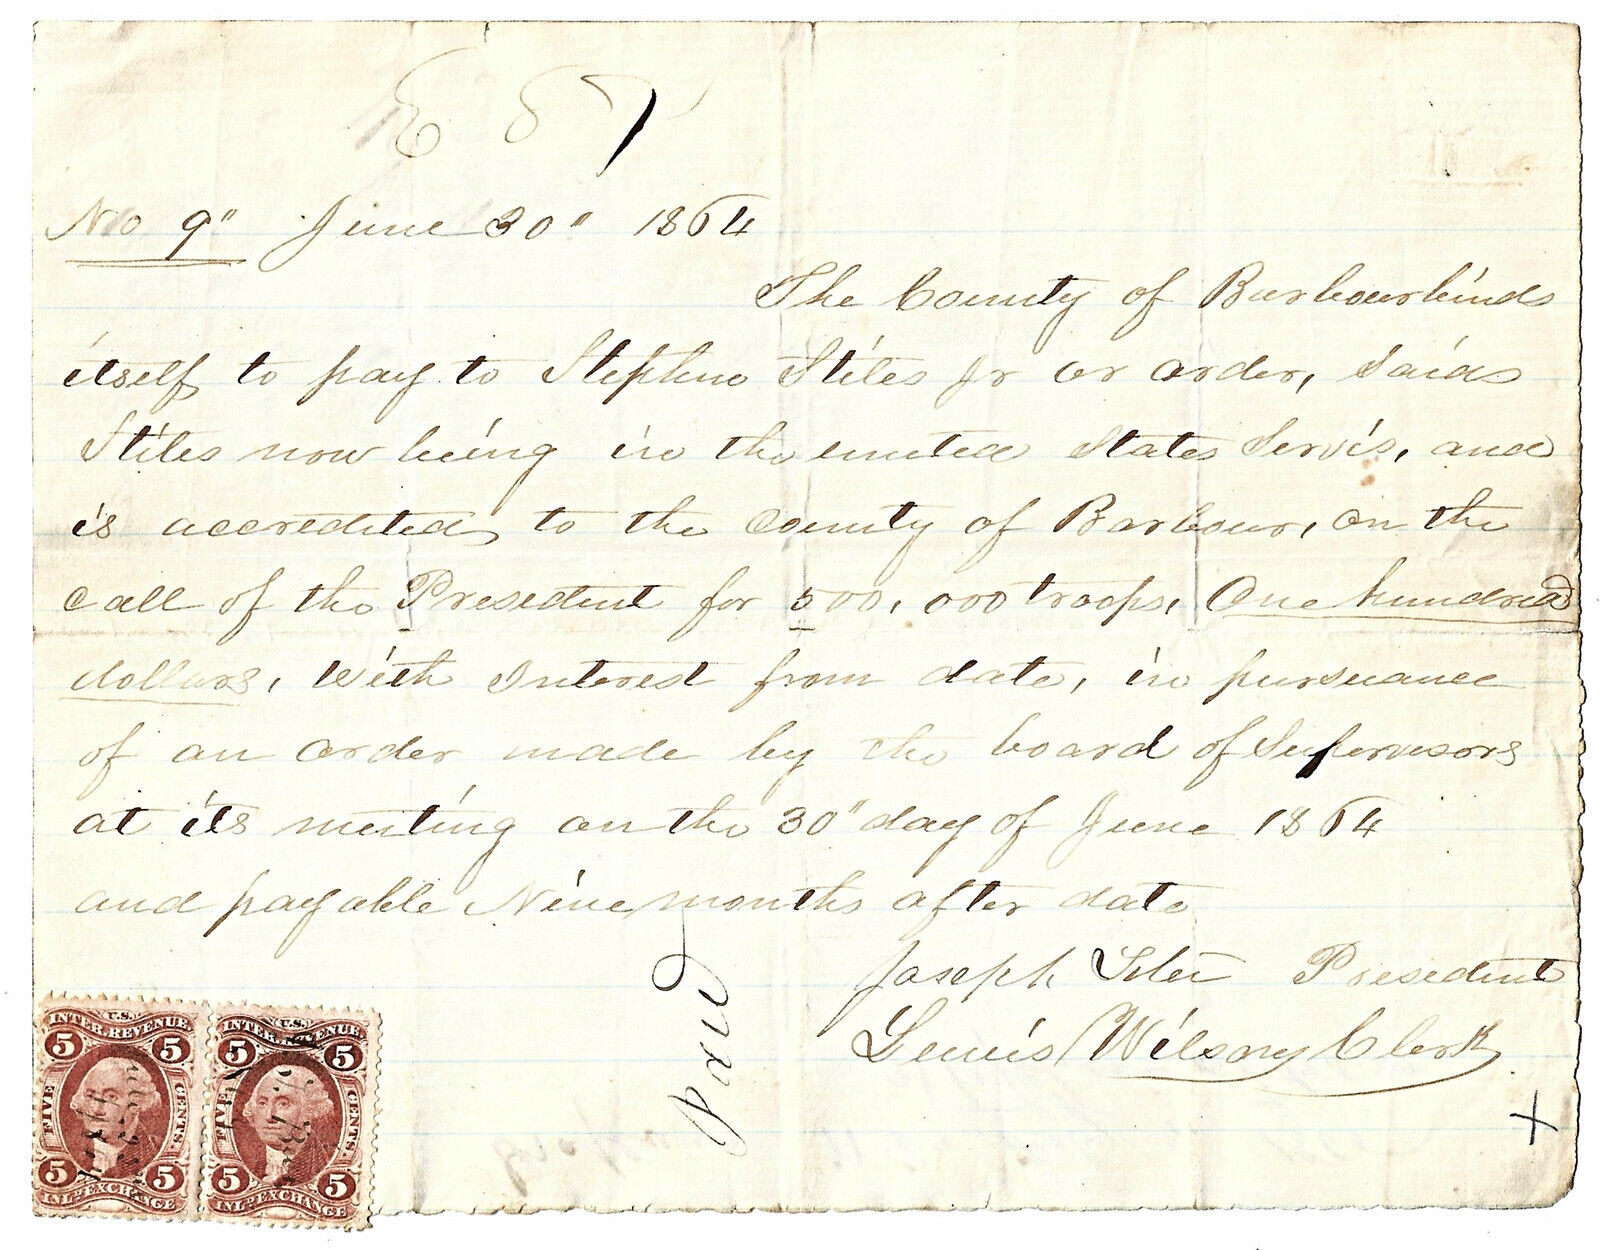 No 9" June 30" 1864
The County of Barbour binds
itself to pay to Stephen Stiles Jr or order, said
Stiles now being in the united States Servis, and
is accredited to the County of Barbour, on the
call of the President for 500,000 troops, One hundred
dollars, with Interest from date, in pursuance
of an order made by the board of Supervisors
at its meeting on the 30" day of June 1864
and payable Nine months after date
Joseph Teter President
Lewis Wilson Clerk
Paid
U.S.
INTER. REVENUE
5 5
FIVE CENTS.
5 5
INL'D EXCHANGE
U.S.
INTER. REVENUE
5 5
FIVE CENTS.
5 5
INL'D EXCHANGE